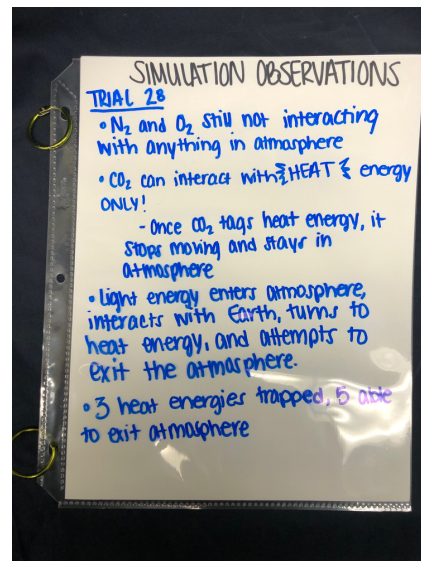 SIMULATION OBSERVATIONS
TRIAL 28
• N₂ and O₂ still not interacting
with anything in atmosphere
• CO₂ can interact with HEAT energy
ONLY!
- Once CO₂ tags heat energy, it
stops moving and stays in
atmosphere
• Light energy enters atmosphere,
interacts with Earth, turns to
heat energy, and attempts to
exit the atmosphere.
• 3 heat energies trapped, 5 able
to exit atmosphere